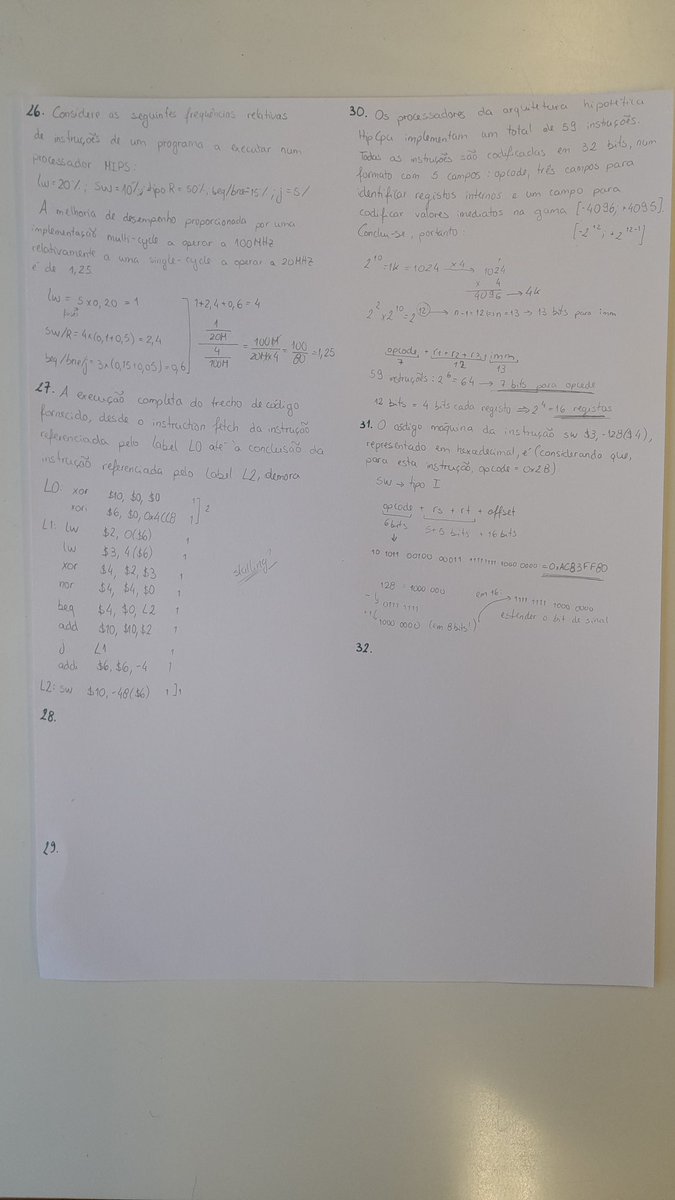 26. Considere as seguintes frequências relativas
de instruções de um programa a executar num
processador MIPS:
lw=20%; sw=10%; tipo R=50%; beq/bne=15%; j=5%
A melhoria de desempenho proporcionada por uma
implementação multi-cycle a operar a 100MHz
relativamente a uma single-cycle a operar a 20MHz
é de 1,25
lw = 5×0,20 = 1
sw/R = 4×(0,1+0,5) = 2,4
beq/bne/j = 3×(0,15+0,05) = 0,6
1+2,4+0,6 = 4
1/20M / 4/100M = 100M/20M×4 = 100/80 = 1,25
27. A execução completa do trecho de código
fornecido, desde o instruction fetch da instrução
referenciada pelo label L0 até à conclusão da
instrução referenciada pelo label L2, demora
L0: xor $10, $0, $0 1
xori $6, $0, 0x4CC8 1 ] 2
L1: lw $2, 0($6) 1
lw $3, 4($6) 1
xor $4, $2, $3 1
nor $4, $4, $0 1
beq $4, $0, L2 1
add $10, $10, $2 1
j L1 1
addi $6, $6, -4 1
L2: sw $10, -48($6) 1 ] 1
28.
29.
30. Os processadores da arquitetura hipotética
HipCpu implementam um total de 59 instruções.
Todas as instruções são codificadas em 32 bits, num
formato com 5 campos: opcode, três campos para
identificar registos internos e um campo para
codificar valores imediatos na gama [-4096; +4095].
Conclui-se, portanto:
[-2^12; +2^12-1]
2^10 = 1k = 1024 ×4 → 1024
× 4
4096 → 4k
2^2 × 2^10 = 2^12 → n-1=12 (=) n=13 → 13 bits para imm
opcode + r1+r2+r3 + imm
7 12 13
59 instruções: 2^6 = 64 → 7 bits para opcode
12 bits = 4 bits cada registo ⇒ 2^4 = 16 registos
31. O código máquina da instrução sw $3,-128($4),
representado em hexadecimal, é (considerando que,
para esta instrução, opcode = 0x2B)
SW → tipo I
opcode + rs + rt + offset
6 bits 5+5 bits + 16 bits
10 1011 00100 00011 1111 1111 1000 0000 = 0xAC83FF80
128 = 1000 000
0111 1111
1000 0000 (em 8 bits!)
em 16: → 1111 1111 1000 0000
estender o bit de sinal
32.